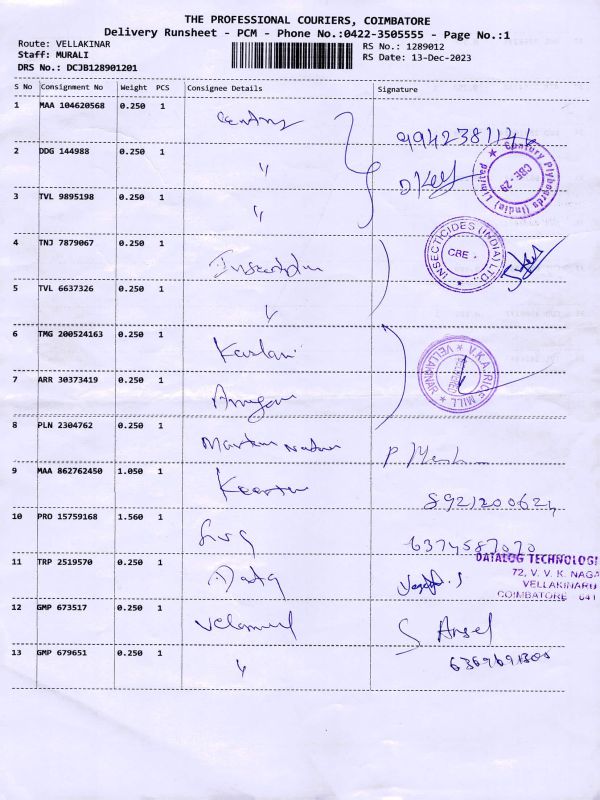 THE PROFESSIONAL COURIERS, COIMBATORE
Delivery Runsheet - PCM - Phone No.:0422-3505555 - Page No.:1
Route: VELLAKINAR
Staff: MURALI
DRS No.: DCJB128901201
RS No.: 1289012
RS Date: 13-Dec-2023
S No Consignment No Weight PCS Consignee Details Signature
1 MAA 104620568 0.250 1 Century
2 DDG 144988 0.250 1 "
3 TVL 9895198 0.250 1 "
Century Plyboards (India) Limited
CBE-29
4 TNJ 7879067 0.250 1
INSECTICIDES (INDIA) LTD.
CBE
5 TVL 6637326 0.250 1 "
6 TMG 200524163 0.250 1
V.K.A. RICE MILL
VELLAKINAR
7 ARR 30373419 0.250 1
8 PLN 2304762 0.250 1
9 MAA 862762450 1.050 1
10 PRO 15759168 1.560 1 6374587070
11 TRP 2519570 0.250 1
DATALOG TECHNOLOGI
72, V. V. K. NAGA
VELLAKINARU
COIMBATORE 641
12 GMP 673517 0.250 1
13 GMP 679651 0.250 1 "